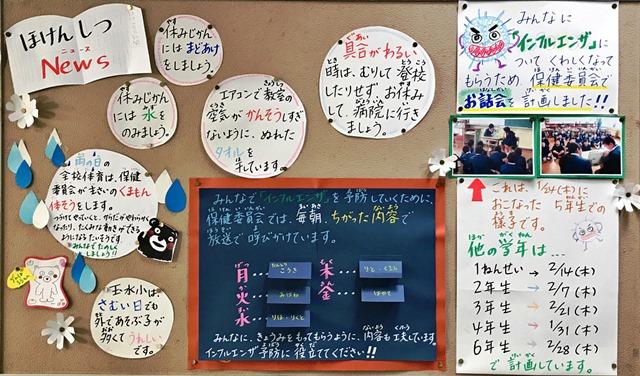 ほけんしつ
ニュース
News
休みじかん
には まどあけ
をしましょう。
休みじかん
には 水を
のみましょう。
エアコンで教室の
空気が かんそうしすぎ
ないように、ぬれた
タオルを
干しています。
具合がわるい
時は、むりして 登校
したりせず、お休み
して、病院に行き
ましょう。
雨の日の
全校体育は、保健
委員会がまさいの くまもん
体そうをします。
つづけてやっていくと、からだがやわらかく
なったり、たくみな動きができる
ようになる たいそうです。
※みんなでたのしく
しましょう!!
玉水小は
さむい日でも
外であそぶ子が
多くて うれしい
です。
みんなで「インフルエンザ」を予防していくために、
保健委員会では、毎朝、ちがった内容で
放送で呼びかけています。
月…こうき
火…みはね
水…りほ・りくと
木…りと・くるみ
金…はやて
みんなに、きょうみをもってもらうように、内容も工夫しています。
インフルエンザ予防に役立ててください!!
みんなに
「インフルエンザ」に
ついて くわしくなって
もらうため、保健委員会で
お話会を計画しました!!
これは、1/24(木)に
おこなった 5年生での
様子です。
他の学年は…
1ねんせい → 2/14(木)
2年生 → 2/7(木)
3年生 → 2/21(木)
4年生 → 1/31(木)
6年生 → 2/28(木)
で計画しています。